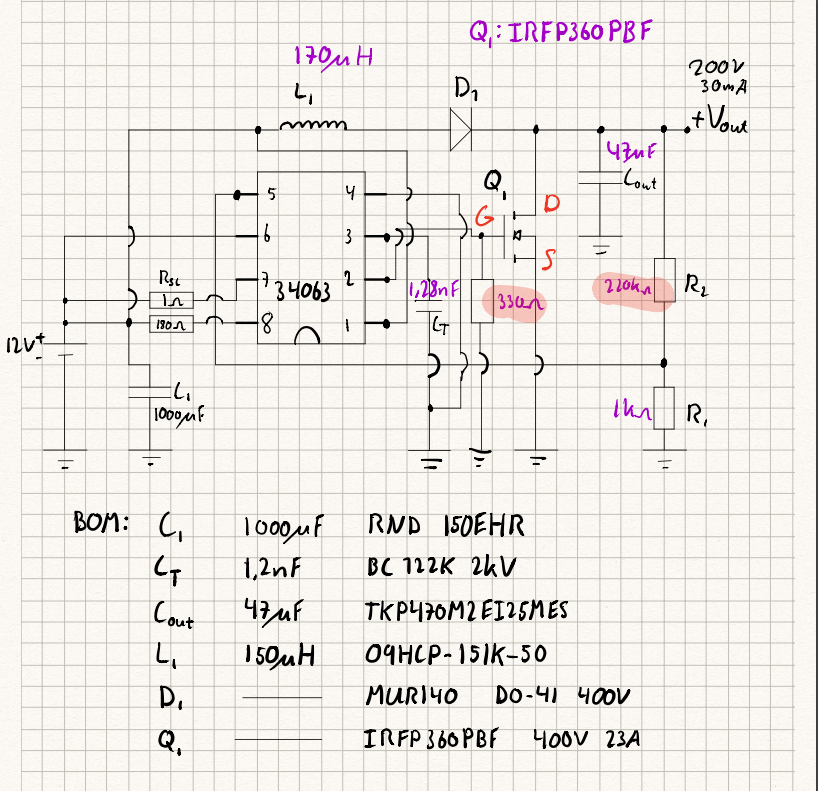 Q₁: IRFP360PBF
170µH
L₁
D₁
200V
30mA
+Vout
47µF
Cout
Q₁
G
D
S
5
4
6
3
7
2
8
1
34063
RSC
1Ω
180Ω
1,28nF
CT
330Ω
220kΩ
R₂
12V
+
-
C₁
1000µF
1kΩ
R₁
BOM: C₁ 1000µF RND 150EHR
CT 1,2nF BC 122K 2kV
Cout 47µF TKP470M2EI25MES
L₁ 150µH 09HCP-151K-50
D₁ MUR140 DO-41 400V
Q₁ IRFP360PBF 400V 23A